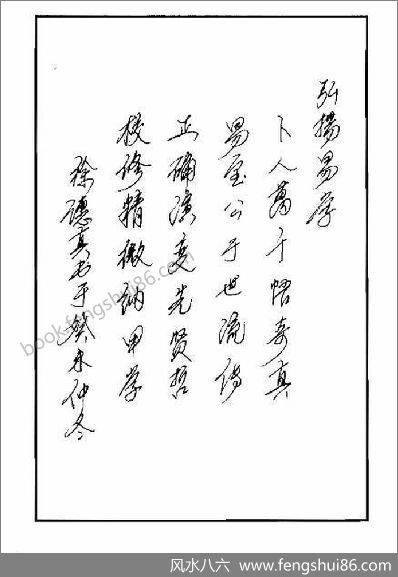 弘扬易学
卜人万千悟奇真
易室公于世流传
正确演变先贤哲
校修精微纳甲学
徐德真书于癸未仲冬
book.fengshui86.com
风水八六 - www.fengshui86.com